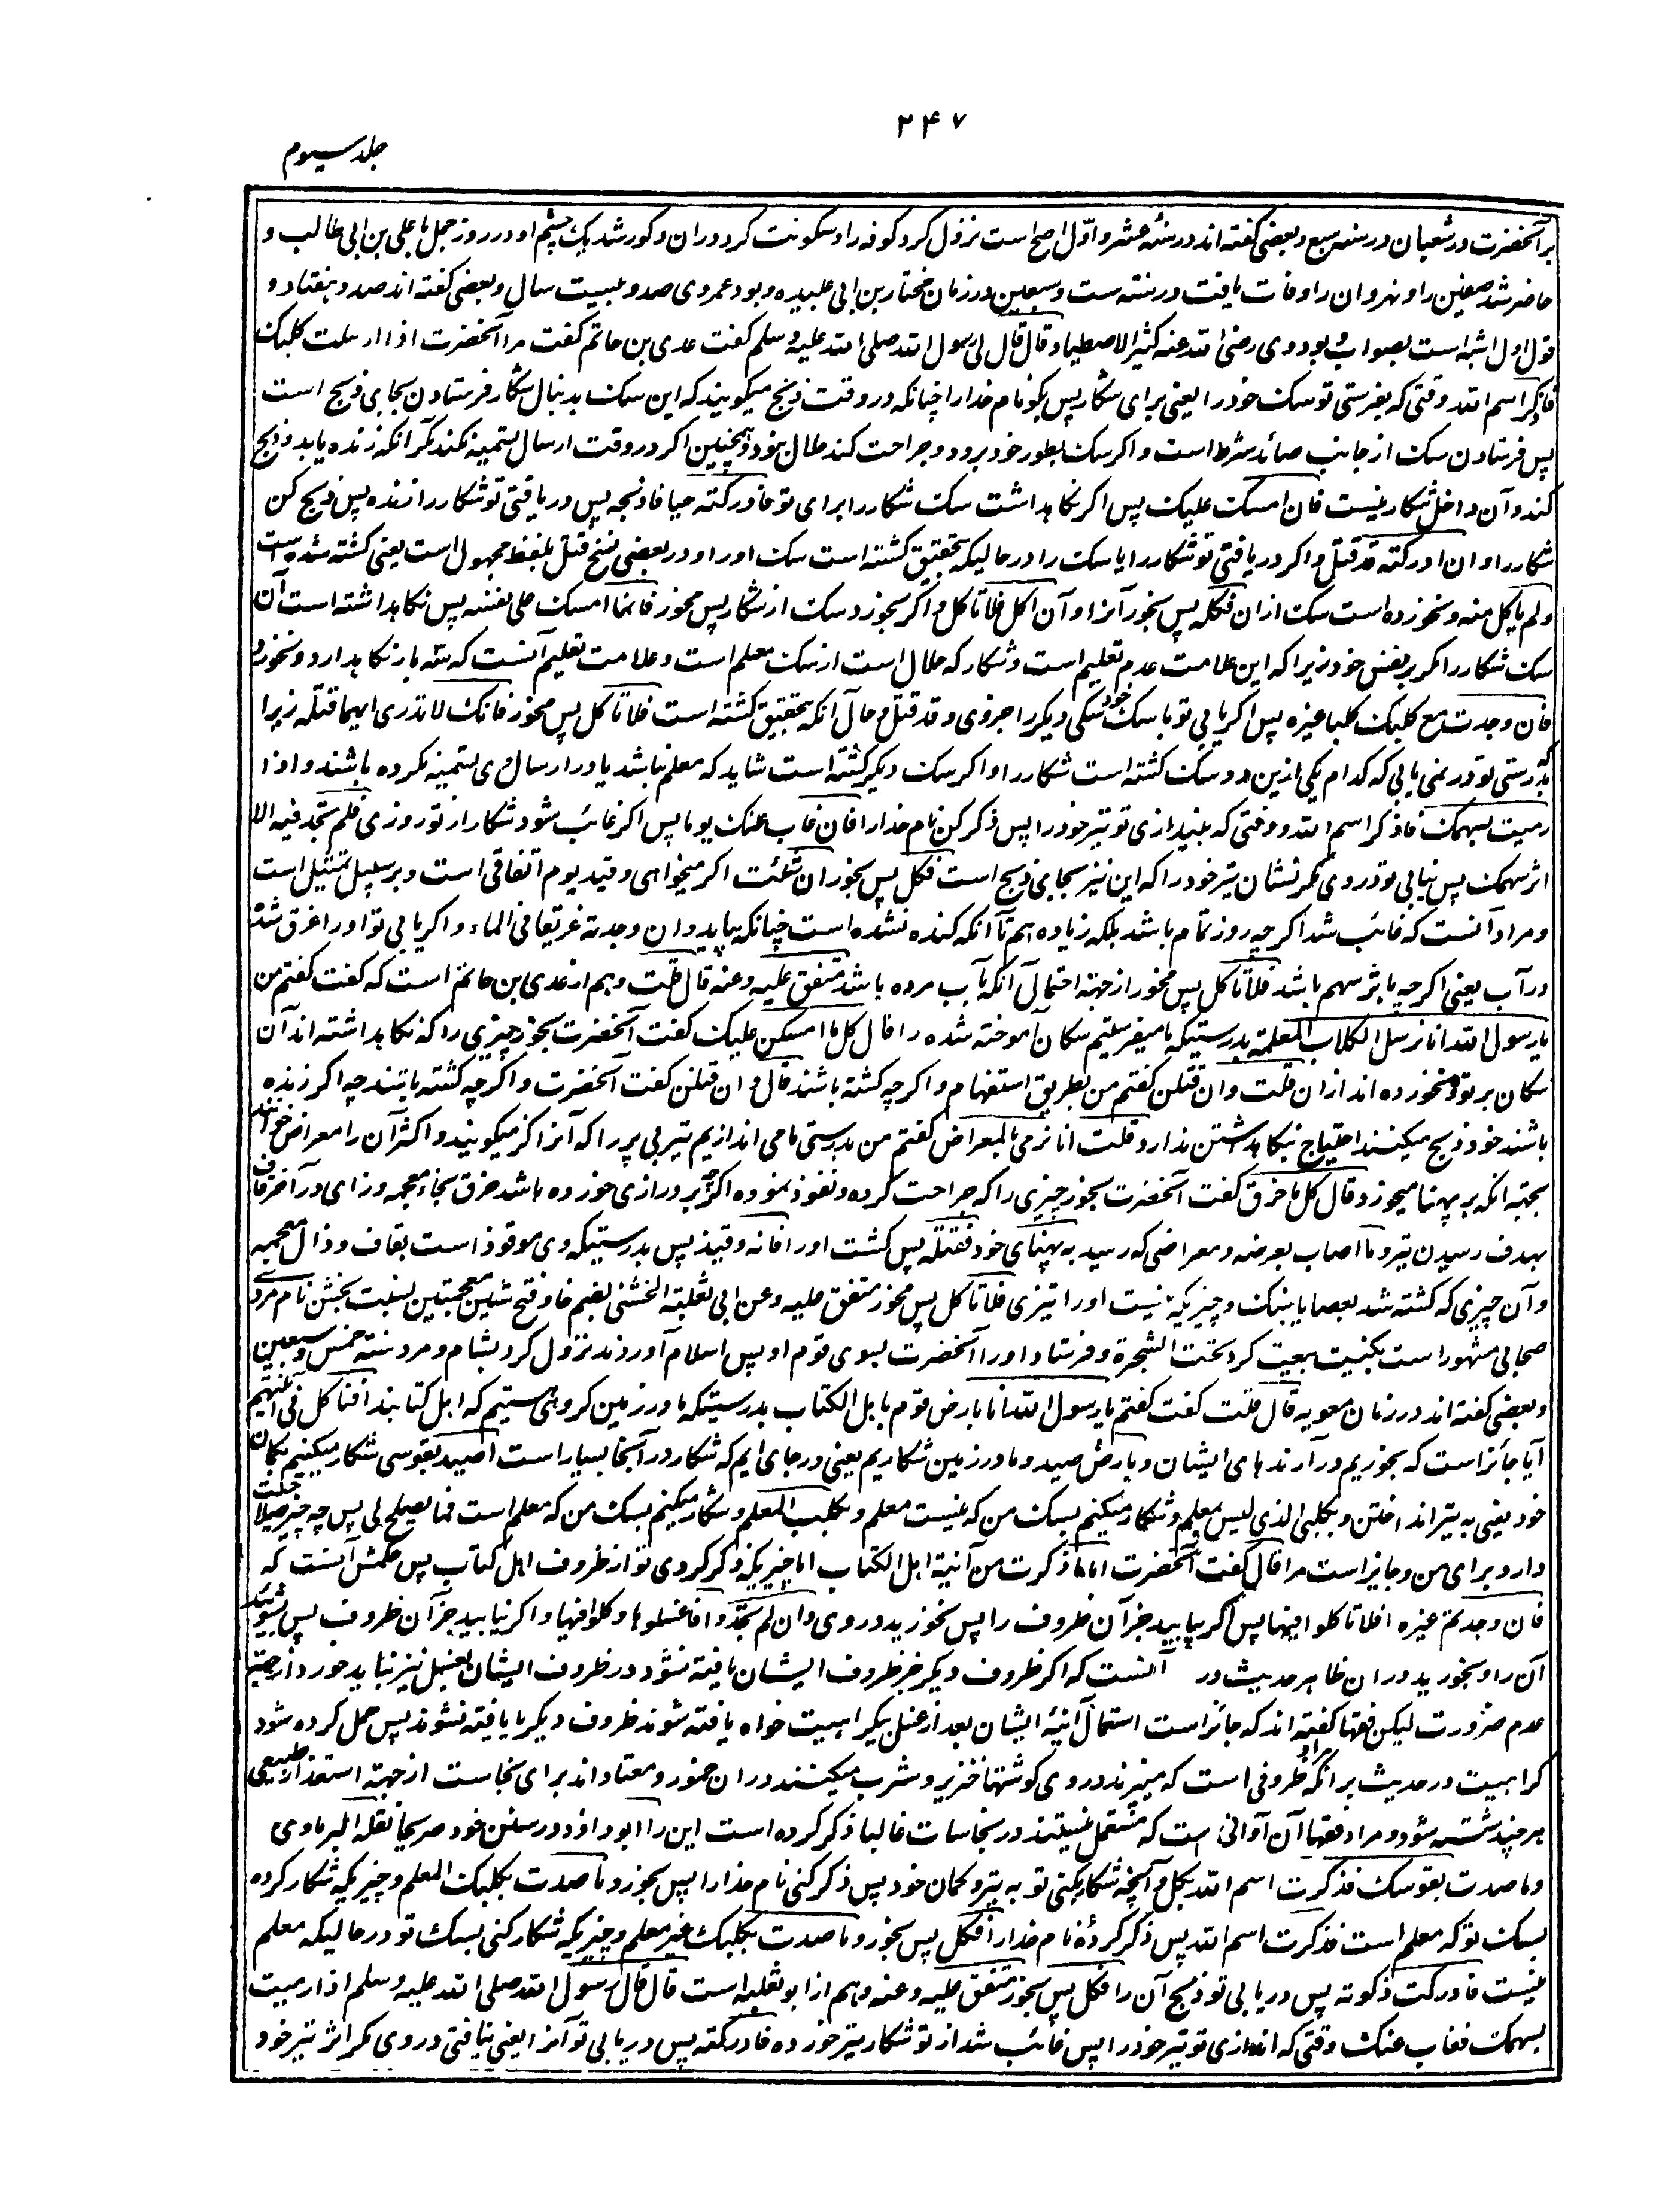 ۲۴۷
جلد سیوم
بر آنحضرت در شعبان در سنه سبع و بعضی گفته اند در سنهٔ عشر و اوّل اصح است نزول کرد کوفه را و سکونت کرد دران و کور شد یک چشم او در روز جمل با علی بن ابی طالب و
حاضر شد صفین را و نهروان را و وفات یافت در سنته ست و سبعین در زمان مختار بن ابی عبیده و بود عمر وی صد و بیست سال و بعضی گفته اند صد و هفتاد و
قول اول اشبه است بصواب و بود وی رضی الله عنه کثیر الاصطیاد قال قال لی رسول الله صلی الله علیه و سلم گفت عدی بن حاتم گفت مرا آنحضرت اذا ارسلت کلبک
فاذکر اسم الله وقتی که بفرستی تو سگ خود را یعنی برای شکار پس بگو نام خدا را چنانکه در وقت ذبح میگویند که این سگ بدنبال شکار فرستادن بجای ذبح است
پس فرستادن سگ از جانب صائد شرط است و اگر سگ بطور خود برود و جراحت کند حلال نبود و همچنین اگر در وقت ارسال تسمیه نکند مگر آنکه زنده یابد و ذبح
کند و آن داخل شکار نیست فان امسک علیک پس اگر نگاهداشت سگ شکار را برای تو فادرکته حیا فاذبحه پس دریافتی تو شکار را زنده پس ذبح کن
شکار را و ان ادرکته قد قتل و اگر دریافتی تو شکار را یا سگ را درحالیکه بتحقیق کشته است سگ او را و در بعضی نسخ قتل بلفظ مجهول است یعنی کشته شده است
و لم یاکل منه و نخورده است سگ ازان فکله پس بخور آنرا و آن اکل فلا تاکل و اگر بخورد سگ از شکار پس مخور فانما امسک علی نفسه پس نگاهداشته است آن
سگ شکار را مگر بر نفس خود زیرا که این علامت عدم تعلیم است و شکار که حلال است از سگ معلم است و علامت تعلیم آنست که سه بار نگاهدارد و نخورد
فان وجدت مع کلبک کلبا غیره پس اگر یابی تو با سگ خود سگی دیگر را جز وی و قد قتل و حال آنکه بتحقیق کشته است فلا تاکل پس مخور فانک لا تدری ایهما قتله زیرا
که بدرستی تو در نمی یابی که کدام یکی ازین دو سگ کشته است شکار را و اگر سگ دیگر کشته است شاید که معلم نباشد یا در ارسال وی تسمیه نکرده باشند و اذا
رمیت بسهمک فاذکر اسم الله و وقتی که بیندازی تو تیر خود را پس ذکر کن نام خدا را فان غاب عنک یوما پس اگر غائب شود شکار از تو روزی فلم تجد فیه الا
اثر سهمک پس نیابی تو در وی مگر نشان تیر خود را که این نیز بجای ذبح است فکل پس بخور ان شئت اگر میخواهی و قید یوم اتفاقی است و بر سبیل تمثیل است
و مراد آنست که غائب شد اگرچه روز تمام باشد بلکه زیاده هم تا آنکه گنده نشده است چنانکه بیاید و ان وجدته غریقا فی الماء و اگر یابی تو او را غرق شده
در آب یعنی اگرچه باثر سهم باشد فلا تاکل پس مخور از جهته احتمال آنکه بآب مرده باشد متفق علیه و عنه قال قلت و هم از عدی بن حاتم است که گفت گفتم من
یا رسول الله انا نرسل الکلاب المعلمة بدرستیکه ما میفرستیم سگان آموخته شده را قال کل ما امسکن علیک گفت آنحضرت بخور چیزی را که نگاهداشته اند آن
سگان بر تو و نخورده اند ازان قلت و ان قتلن گفتم من بطریق استفهام و اگرچه کشته باشند قال و ان قتلن گفت آنحضرت و اگرچه کشته باشند چه اگر زنده
باشند خود ذبح میکنند احتیاج نگاهداشتن ندارد قلت انا نرمی بالمعراض گفتم من بدرستی ما می اندازیم تیر بی پر را که آنرا گز میگویند و اکثر آن را معراض خوانند
بجهته آنکه بر پهنا میخورد قال کل ما خزق گفت آنحضرت بخور چیزی را که جراحت کرده و نفوذ نموده اگرچه بر درازی خورده باشد خزق بخاء معجمه و زای و در آخر قاف
بهدف رسیدن تیر و ما اصاب بعرضه و معراضی که رسید به پهنای خود فقتله پس کشت او را فانه وقیذ پس بدرستیکه وی موقوذ است بقاف و ذال معجمه
و آن چیزی که کشته شد بعصا یا بسنگ و چیزیکه نیست او را تیزی فلا تاکل پس مخور متفق علیه و عن ابی ثعلبة الخشنی بضم خا و فتح شین معجمتین نسبت بخشن نام مردی
صحابی مشهور است بکنیت بیعت کرد تحت الشجرة و فرستاد او را آنحضرت بسوی قوم او پس اسلام آوردند نزول کرد بشام و مرد سنة خمس و سبعین
و بعضی گفته اند در زمان معویه قال قلت گفت گفتم یا رسول الله انا بارض قوم باهل الکتاب بدرستیکه ما در زمین گروهی هستیم که اهل کتابند افنأکل فی آنیتهم
آیا جائز است که بخوریم در آوندهای ایشان و بارض صید و ما در زمین شکاریم یعنی در جای ایم که شکار در آنجا بسیار است اصید بقوسی شکار میکنیم بکمان
خود یعنی به تیر انداختن و بکلبی الذی لیس بمعلم و شکار میکنیم بسگ من که نیست معلم و بکلب المعلم و شکار میکنیم بسگ من که معلم است فما یصلح لی پس چه چیز صلاحیت
دارد برای من و جایز است مرا قال گفت آنحضرت اما ما ذکرت من آنیة اهل الکتاب اما چیزیکه ذکر کردی تو از ظروف اهل کتاب پس حکمش آنست که
فان وجدتم غیره افلا تاکلوا فیها پس اگر بیابید جز آن ظروف را پس نخورید در وی و ان لم تجدوا فاغسلوها و کلوا فیها و اگر نیابید جز آن ظروف پس بشوئید
آن را و بخورید دران ظاهر حدیث در آنست که اگر ظروف دیگر جز ظروف ایشان یافته نشود در ظروف ایشان بغسل نیز نباید خورد از جهته
عدم ضرورت لیکن فقها گفته اند که جائز است استعمال آنیهٔ ایشان بعد از غسل بیکراهیت خواه یافته شوند ظروف دیگر یا یافته نشوند پس حمل کرده شود
کراهیت در حدیث بر آنکه مراد ظروفی است که میپزند در وی گوشتها خنزیر و شرب میکنند دران خمور و معتاد اند برای نجاست از جهته استقذار طبیعی
هرچند شسته شود و مراد فقها آن آوانی است که مستعمل نیستند در نجاسات غالبا ذکر کرده است این را ابو داؤد در سنن خود صریحا نقله البرماوی
و ما صدت بقوسک فذکرت اسم الله فکل و آنچه شکار بکنی تو به تیر و کمان خود پس ذکر کنی نام خدا را پس بخور و ما صدت بکلبک المعلم و چیزیکه شکار کرده
بسگ تو که معلم است فذکرت اسم الله پس ذکر کردهٔ نام خدا را فکل پس بخور و ما صدت بکلبک غیر معلم و چیزیکه شکار کنی بسگ تو درحالیکه معلم
نیست فادرکت ذکوته پس دریابی تو ذبح آن را فکل پس بخور متفق علیه و عنه و هم از ابو ثعلبه است قال قال رسول الله صلی الله علیه و سلم اذا رمیت
بسهمک فغاب عنک وقتی که اندازی تو تیر خود را پس غائب شد از تو شکار تیر خورده فادرکته پس دریابی تو آنرا یعنی نیافتی در وی مگر اثر تیر خود